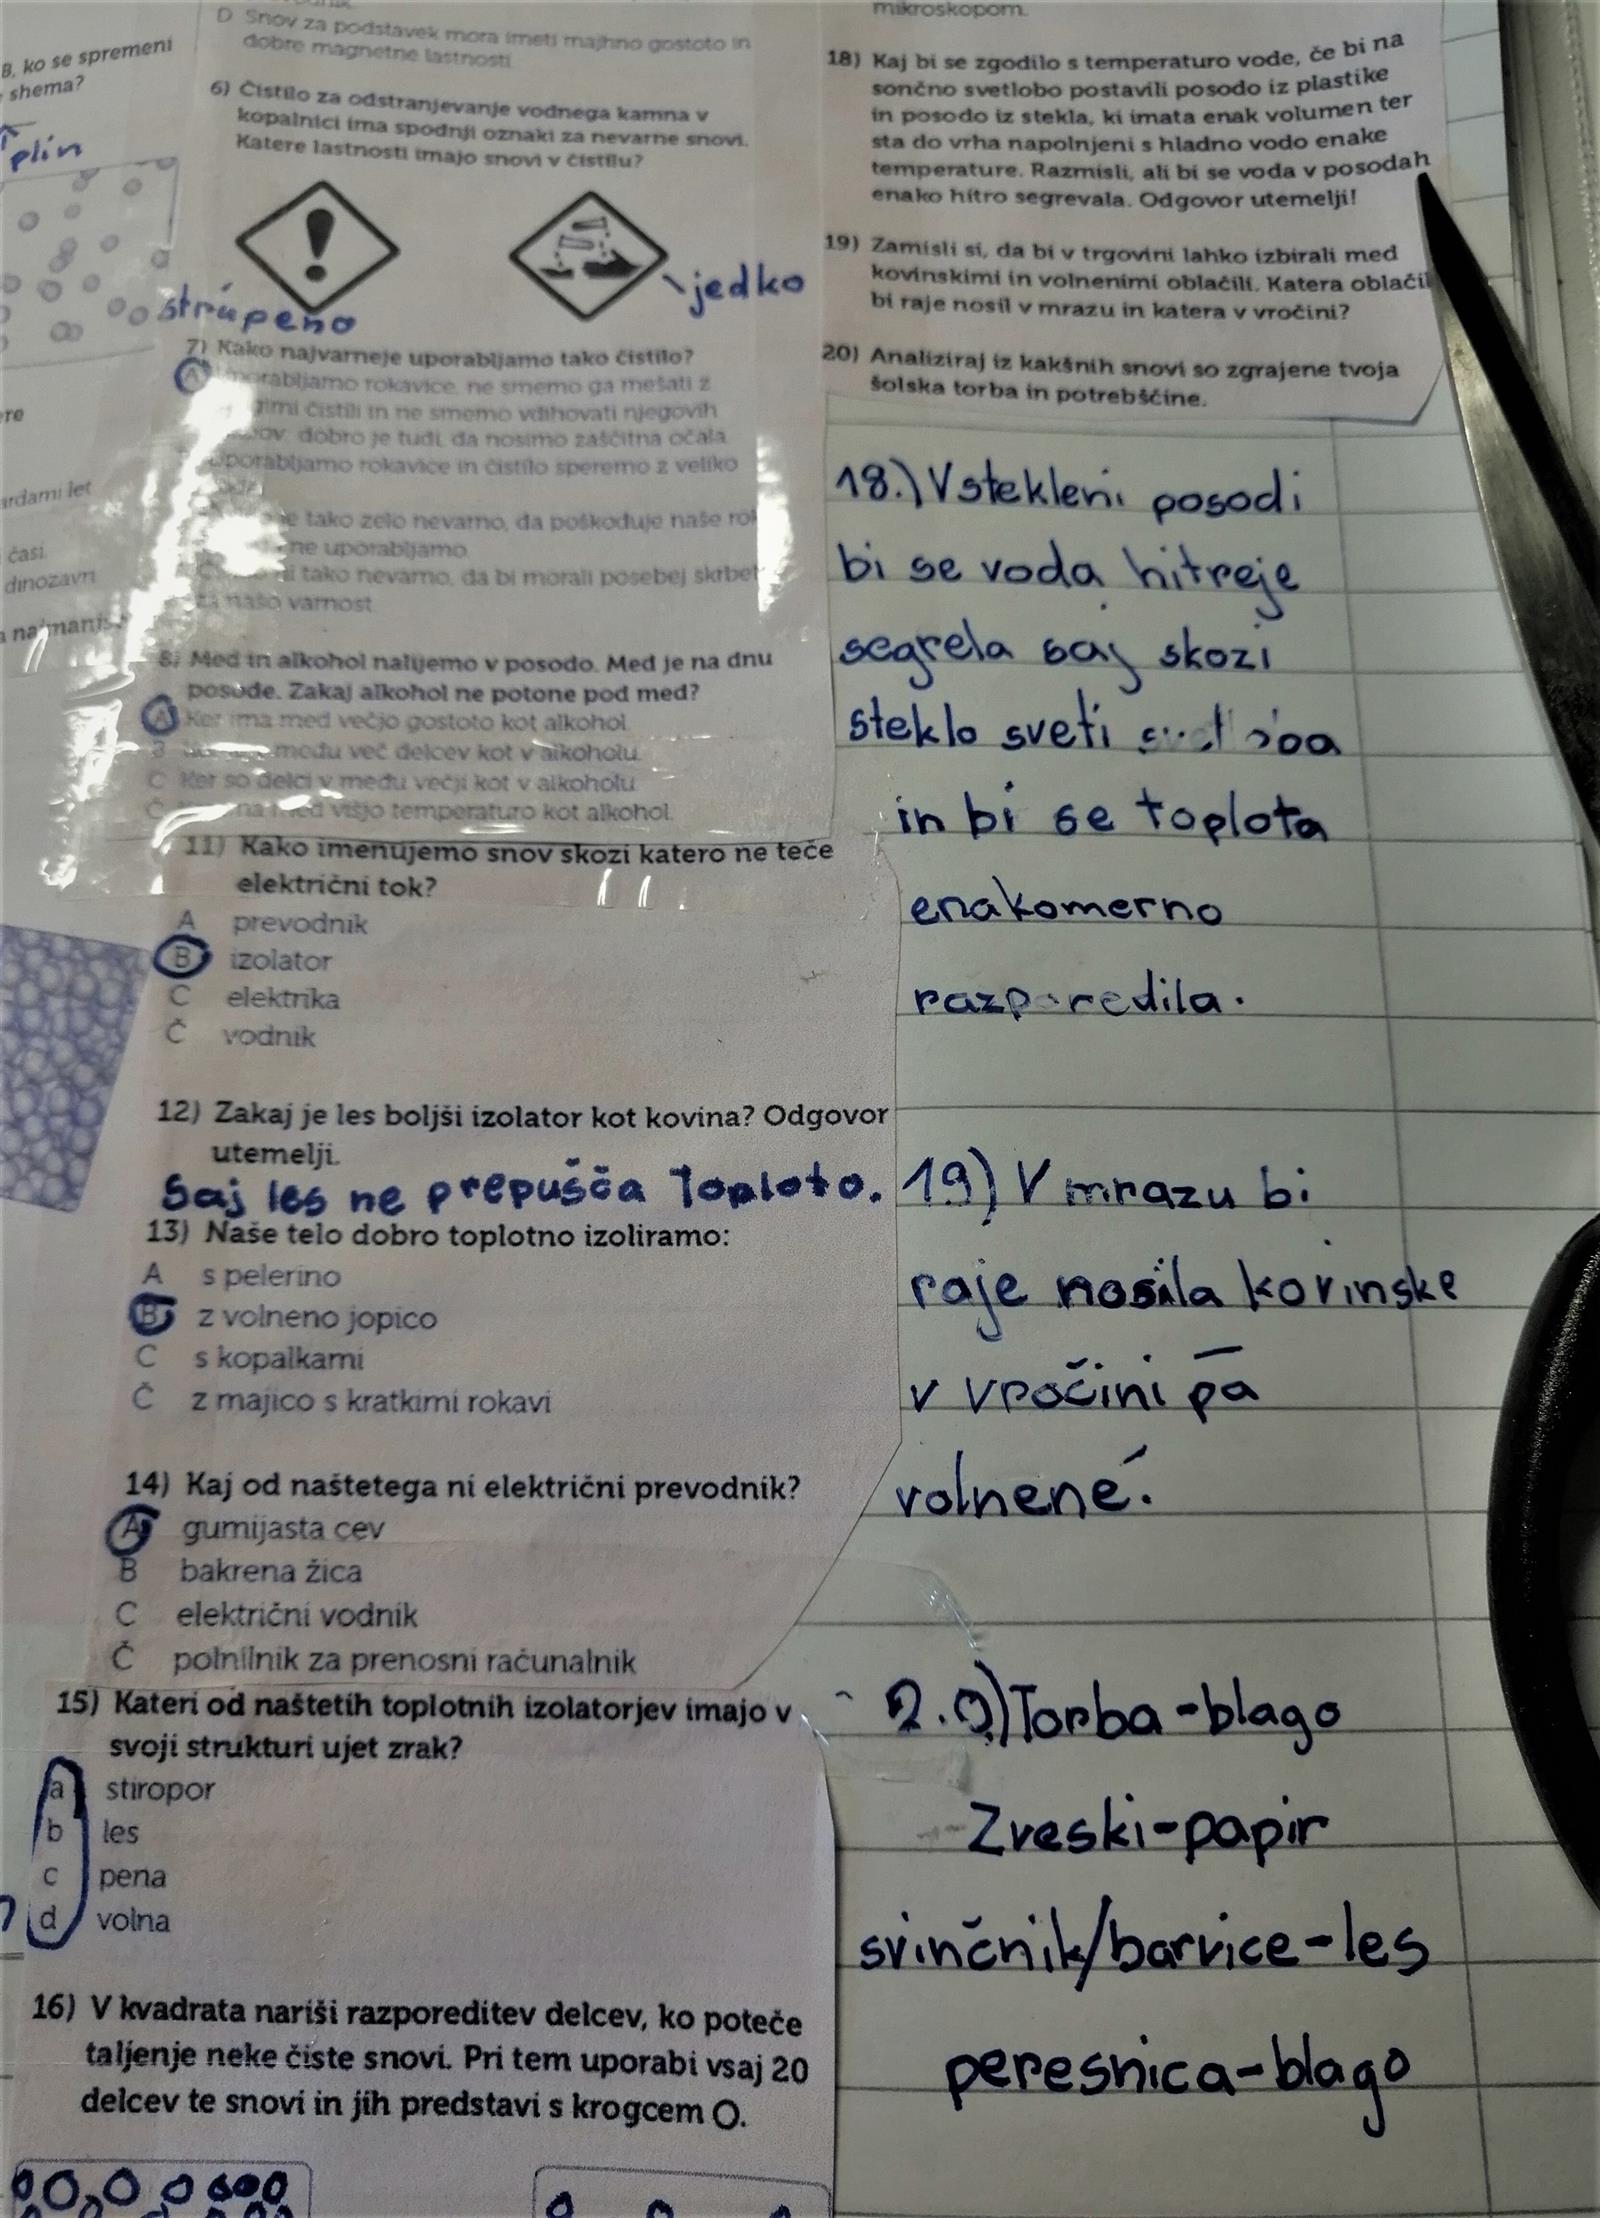 mikroskopom.
B, ko se spremeni
shema?
plin
D Snov za podstavek mora imeti majhno gostoto in
dobre magnetne lastnosti.
6) Čistilo za odstranjevanje vodnega kamna v
kopalnici ima spodnji oznaki za nevarne snovi.
Katere lastnosti imajo snovi v čistilu?
strupeno
jedko
7) Kako najvarneje uporabljamo tako čistilo?
A uporabljamo rokavice, ne smemo ga mešati z
čistili in ne smemo vdihovati njegovih
dobro je tudi, da nosimo zaščitna očala.
uporabljamo rokavice in čistilo speremo z veliko
tako zelo nevarno, da poškoduje naše
ne uporabljamo.
tako nevarno, da bi morali posebej
za našo varnost.
ardami let
časi
dinozavri
8) Med in alkohol nalijemo v posodo. Med je na dnu
posode. Zakaj alkohol ne potone pod med?
A Ker ima med večjo gostoto kot alkohol.
B medu več delcev kot v alkoholu.
C Ker so delci v medu večji kot v alkoholu.
Č med višjo temperaturo kot alkohol.
11) Kako imenujemo snov skozi katero ne teče
električni tok?
A prevodnik
B izolator
C elektrika
Č vodnik
12) Zakaj je les boljši izolator kot kovina? Odgovor
utemelji.
Saj les ne prepušča toploto.
13) Naše telo dobro toplotno izoliramo:
A s pelerino
B z volneno jopico
C s kopalkami
Č z majico s kratkimi rokavi
14) Kaj od naštetega ni električni prevodnik?
A gumijasta cev
B bakrena žica
C električni vodnik
Č polnilnik za prenosni računalnik
15) Kateri od naštetih toplotnih izolatorjev imajo v
svoji strukturi ujet zrak?
a stiropor
b les
c pena
d volna
16) V kvadrata nariši razporeditev delcev, ko poteče
taljenje neke čiste snovi. Pri tem uporabi vsaj 20
delcev te snovi in jih predstavi s krogcem O.
18) Kaj bi se zgodilo s temperaturo vode, če bi na
sončno svetlobo postavili posodo iz plastike
in posodo iz stekla, ki imata enak volumen ter
sta do vrha napolnjeni s hladno vodo enake
temperature. Razmisli, ali bi se voda v posodah
enako hitro segrevala. Odgovor utemelji!
19) Zamisli si, da bi v trgovini lahko izbirali med
kovinskimi in volnenimi oblačili. Katera oblačil
bi raje nosil v mrazu in katera v vročini?
20) Analiziraj iz kakšnih snovi so zgrajene tvoja
šolska torba in potrebščine.
18.) V stekleni posodi
bi se voda hitreje
segrela saj skozi
steklo sveti svetloba
in bi se toplota
enakomerno
razporedila.
19) V mrazu bi
raje nosila kovinske
v vročini pa
volnene.
20) Torba-blago
Zveski-papir
svinčnik/barvice-les
peresnica-blago